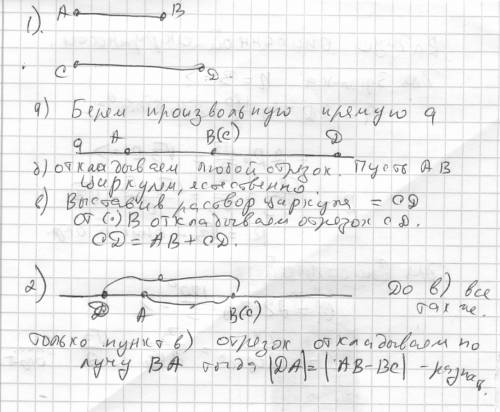 1).
A B
C D
а) Берем произвольную прямую a
a A B(C) D
б) откладываем любой отрезок. Пусть AB
циркулем, естественно.
в) Выставив раствор циркуля = CD
от (.) B откладываем отрезок CD.
CD = AB + CD.
2)
D A B(C)
До в) все
так же.
только пункт в) отрезок откладываем по
лучу BA тогда |DA| = |AB-BC| -